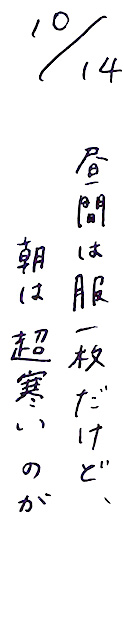 10/14
昼間は服一枚だけど、
朝は超寒いのが